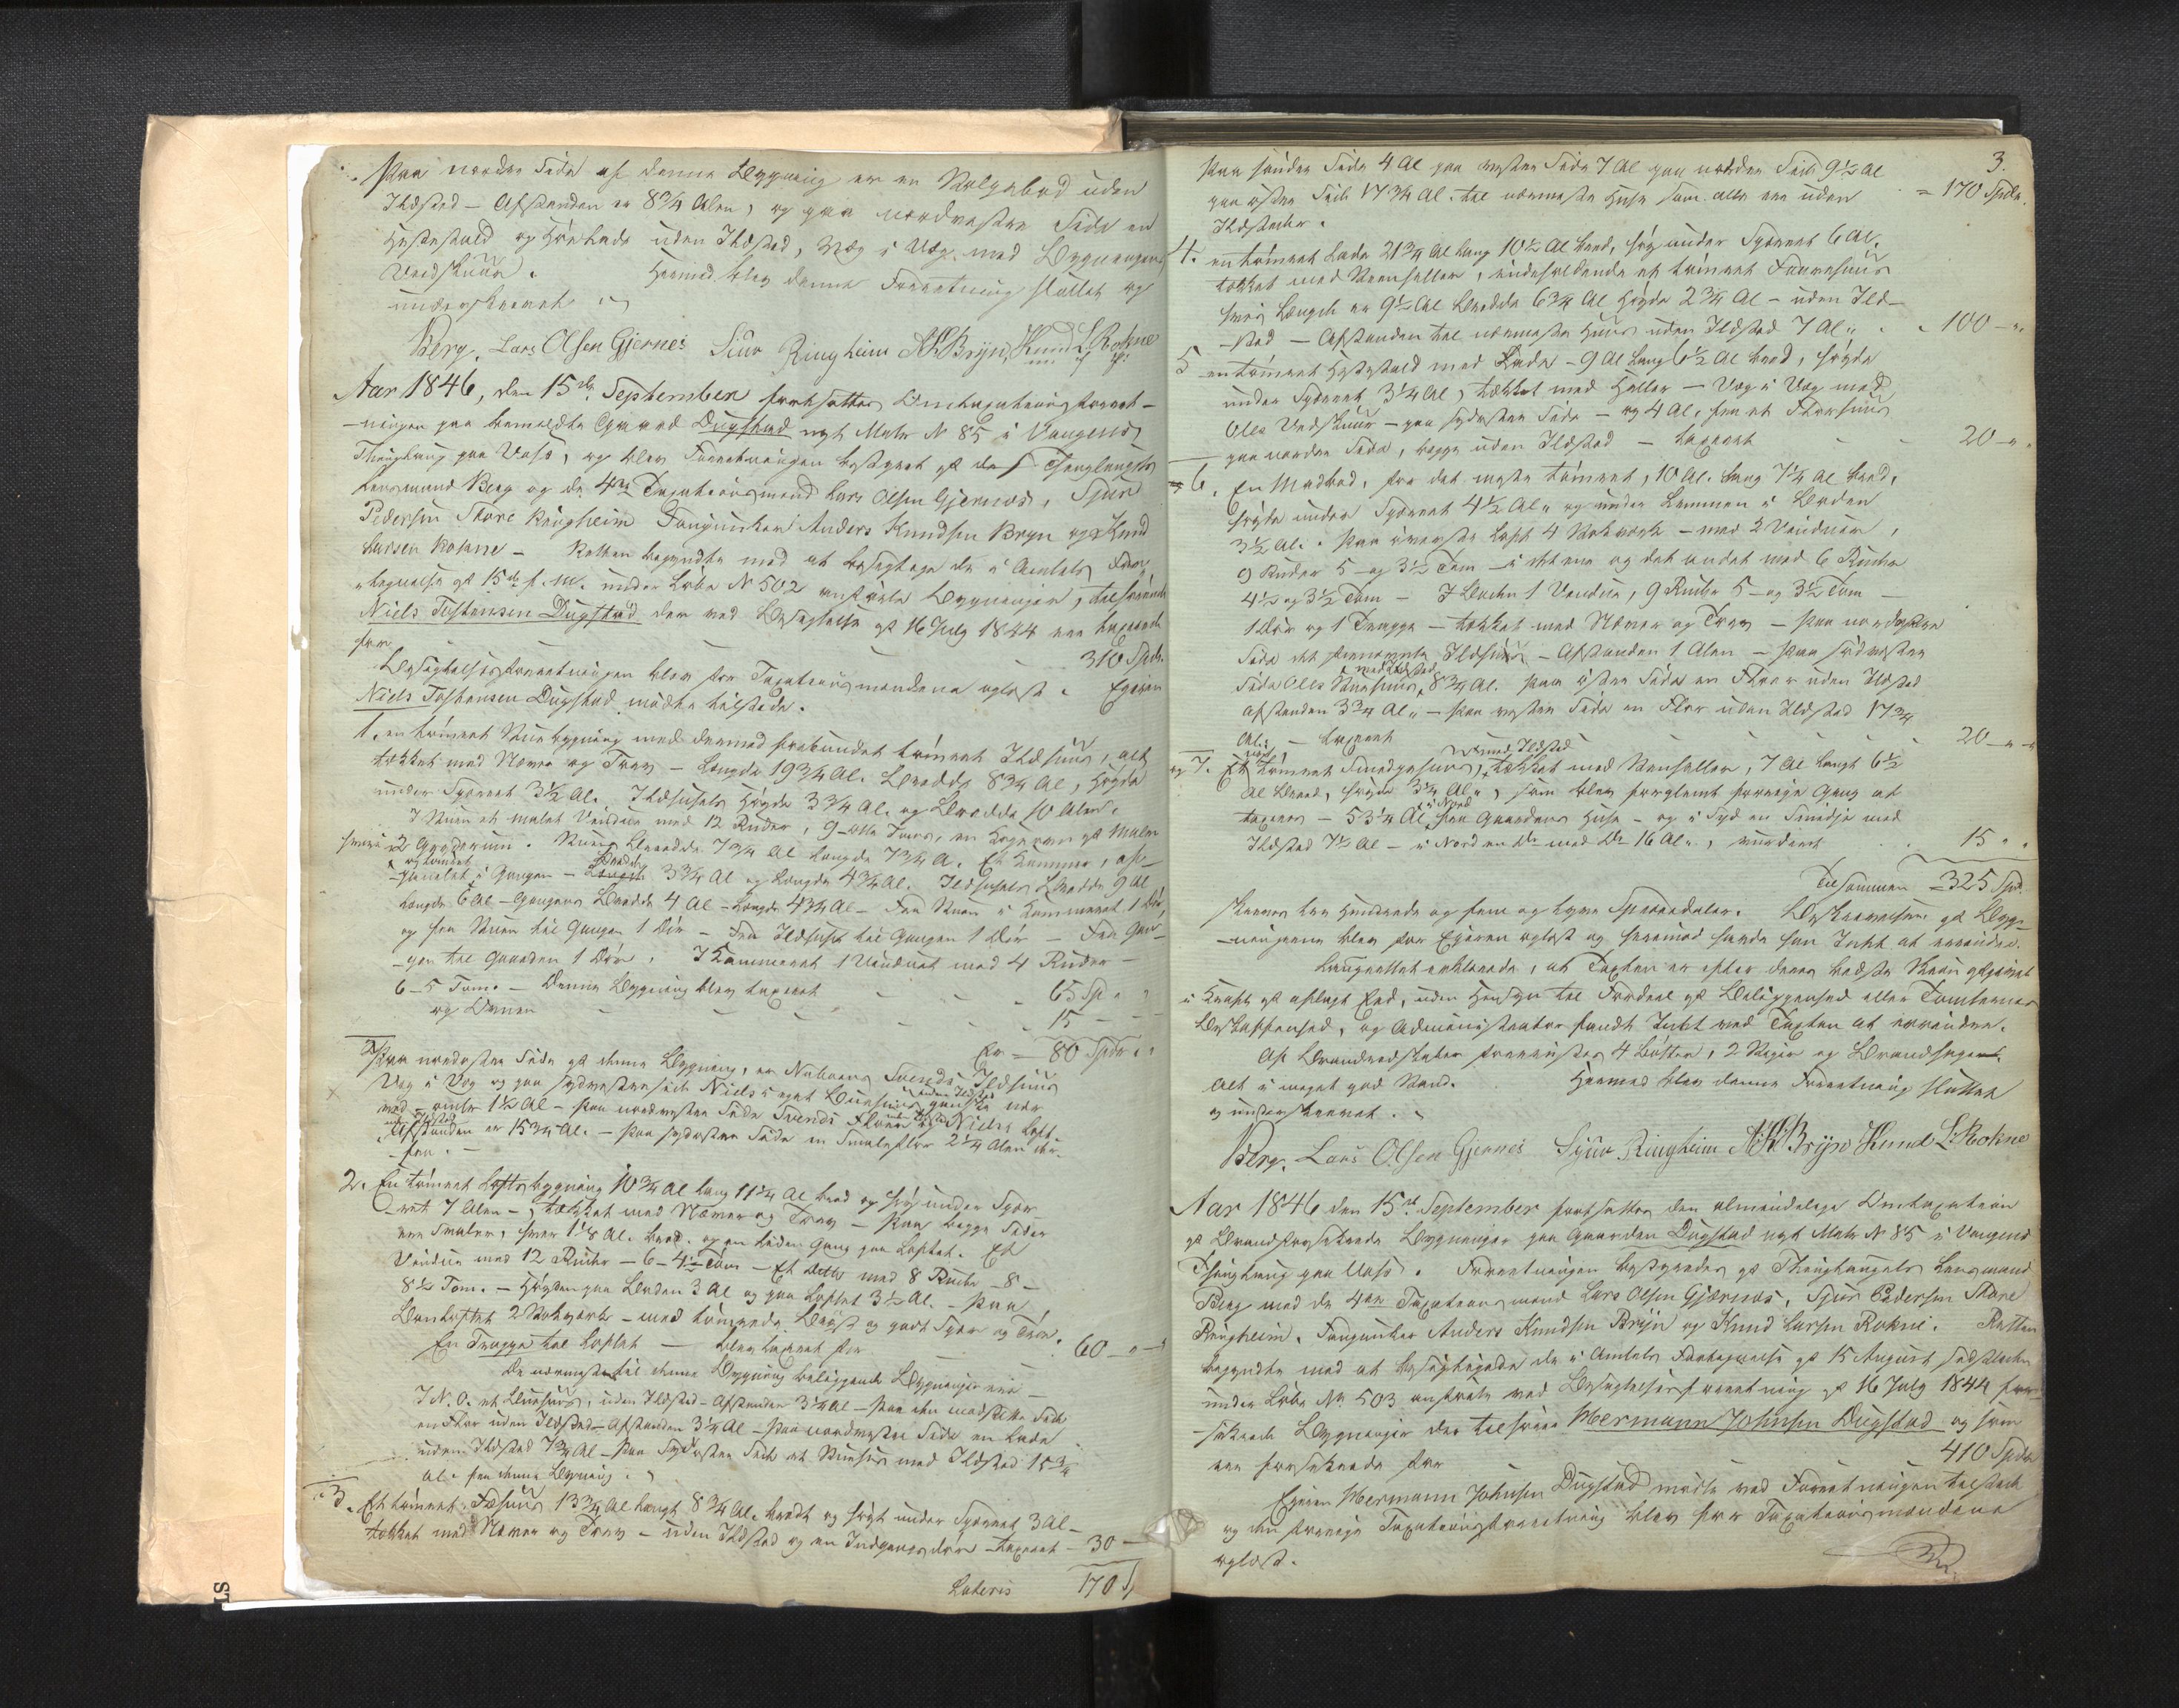 Paa nordre Side af denne Bygning er en Stolpebod uden
Ildsted – Afstanden er 8¾ Alen, og paa nordvestre Side en
Hestestald og Høelade uden Ildsted, Væg i Væg med Bygningens
Vedskuur. Hermed blev denne Forretning sluttet og
underskrevet.
Berg. Lars Olsen Gjernes Siur Ringheim AKBryn Knud L Rokne
Aar 1846, den 15de September fortsattes Omtaxationsforret-
-ningen paa bemeldte Gaard Dugstad nyt Matr N 85 i Vangens
Thinglaug paa Voss, og blev Forretningen bestyret af Thinglaugets
Lensmand Berg og de 4re Taxationsmænd Lars Olsen Gjernes, Sjur
Pedersen Store Ringheim Anders Knudsen Bryn og Knud
Larsen Rokne – Retten begyndte med at besigtige de i Amtets
af 15de f. M. under Løbe N 502 anførte Bygninger, tilhørende
Niels Tostensen Dugstad der ved Besigtelse af 16 July 1844 ere taxerede
for 310 Spdr.
Besigtelsesforretningen blev for Taxationsmændene oplæst. Eieren
Niels Tostensen Dugstad mødte tilstede.
1. en tømret Stuebygning med dermed forbundet tømret Ildhuus, alt
tækket med Næver og Torv – Længde 19¾ Al. Bredde 8¾ Al, Høyde
under Sperret 3½ Al. Ildhusets Høyde 3¾ Al. og Bredde 10 Alen.
I Stuen et malet Vindue med 12 Ruder, 9– Tom, en
Stuens Bredde 7¾ Al Længde 7¾ A. Et Kammer, af-
-panelet i Gangen – Bredde 3¾ Al og Længde 4¾ Al. Ildhusets Bredde 9 Al
Længde 6 Al – Gangens Bredde 4 Al – Længde 4¾ Al – Fra Stuen i Kammeret 1 Dør,
og fra Stuen til Gangen 1 Dør – Fra Ildhuset til Gangen 1 Dør – Fra Gan-
-gen til Gaarden 1 Dør. I Kammeret 1 Vindue med 4 Ruder –
6–5 Tom. – Denne Bygning blev taxeret 65 Sp
og Ovnen 15
Er = 80 Spdr
Paa nordostre Side af denne Bygning, er Naboens Svends Ildhuus
Væg i Væg og paa sydvestre Side Niels's eget Buehuus uden Ildsted
1½ Al – Paa nordvestre Side Svends Floer og Niels's Loft
Afstanden er 15¾ Al. – Paa sydostre Side en Smaleflor 2¼ Alen
fra. –
2. En tømret Loftsbygning 10¾ Al lang 11¼ Al bred og høy under Sper-
-ret 7 Alen –, tækket med Næver og Torv – Paa begge Sider
ere Svaler, hver 1⅞ Al. bred. og en liden Gang paa Loftet. Et
Vindue med 12 Ruder – 6–4½ Tom – Et Ditto med 8 Ruder –8–
8½ Tom. – Høyden paa Boden 3 Al og paa Loftet 3½ Al. – Paa
En Trappe til Loftet – blev taxeret for 60 – " – "
De nærmest til denne Bygning beliggende Bygninger ere –
I N. O. et Buehuus, uden Ildsted – Afstanden 3¼ Al – Paa den modsatte Side
en Flor uden Ildsted – Afstanden 3¼ Al – Paa nordvestre Side en Lade
uden Ildsted 7¾ Al – Paa sydostre Side et Stuehus med Ildsted 15¾
Al. fra denne Bygning.
3. Et tømret Fæhuus 13¾ Al langt 8¾ Al. bredt og høyt under Sperret 3 Al –
tækket med Næver og Torv – uden Ildsted og en Indgangsdør – taxeret – 30 –
Lateris 170 S
3.
Paa søndre Side 4 Al paa vestre Side 7 Al paa nordre Side 9½ Al
paa østre Side 17¾ Al. til nærmeste Huse som alle ere uden = 170 Spdr.
Ildsteder.
4. en tømret Lade 21¾ Al lang 10½ Al bred, høy under Sperret 6 Al.
tækket med Steenheller, indeholdende et tømret Faarehuus
hvis Længde er 9½ Al Bredde 6¾ Al Høyde 2¾ Al – uden Ild-
-sted – Afstanden til nærmeste Huus uden Ildsted 7 Al 100 – "
5 en tømret Hestestald med Lade – 9 Al lang 6½ Al bred, høyde
under Sperret 3¼ Al, tækket med Heller – Væg i Væg med
Oles Vedskuur – paa sydostre Side – og 4 Al. fra et Florhuus
paa nordre Side, begge uden Ildsted – taxeret 20 – "
6. En Madbod, for det meste tømret, 10 Al. lang 7¼ Al bred,
høyde under Sperret 4½ Al og under Lemmen i Boden
3½ Al. Paa øverste Loft 4 – med 2 Vinduer,
9 Ruder 5– og 3½ Tom – i det ene og det andet med 6 Ruder
4½ og 3½ Tom – I Boden 1 Vindue, 9 Ruder 5– og 3½ Tom –
1 Dør og 1 Trappe – tækket med Næver og Torv – Paa nordostre
Side det fornævnte Ildhuus – Afstanden 1 Alen – Paa sydvestre
Side Oles Stuehuus med Ildsted, 8¾ Al. Paa østre Side en Floer uden Ildsted
Afstanden 3¾ Al – Paa vestre Side en Flor uden Ildsted 17¾
Al. – taxeret 20 – " – "
7. Et nyt tømret Smedgehuus, med Ildsted tækket med Steenheller, 7 Al langt 6½
Al bred, høyde 3¼ Al, som blev forglemt forrige Gang at
taxeres – 53¼ Al i Nord fra Gaardens Huse – og i Syd en Smidje med
Ildsted 7½ Al – i Nord en Do med Do 16 Al, vurderet 15 " "
Tilsammen – 325 Spd.
Skriver tre Hundrede og fem og tyve Speciedaler. Beskrivelsen af Byg-
-ningerne blev for Eieren oplæst og herimod havde han Intet at erindre.
Laugrettet erklærede, at Taxten er efter deres bedste Skjøn afgivet
i Kraft af aflagt Eed, uden Hensyn til Fordeel af Beliggenhed eller Tomternes
Beskaffenhed, og Administrator fandt Intet ved Taxten at erindre.
Af Brandredskaber forevistes 4 Bøtter, 2 Stiger og Brandhager
Alt i meget god Stand. Hermed blev denne Forretning sluttet
og underskrevet.
Berg. Lars Olsen Gjernes Sjur Ringheim AKBrÿn Knud L: Rokne
Aar 1846 den 15de September fortsattes den almindelige Omtaxation
af Brandforsikrede Bygninger paa Gaarden Dugstad nyt Matr N 85 i Vangens
Thinglaug paa Voss. Forretningen bestyredes af Thinglaugets Lensmand
Berg med de 4re Taxationsmænd Lars Olsen Gjernes, Sjur Pedersen Store
Ringheim, Anders Knudsen Brÿn og Knud Larsen Rokne. Retten
begyndte med at besigtigede de i Amtets af 15 August sidstleden
under Løbe No 503 anførte ved Besigtelsesforretning af 16 July 1844 for-
-sikrede Bygninger der tilhøre Hermann Johnsen Dugstad og som
ere forsikrede for 410 Spdr
Eieren Hermann Johnsen Dugstad mødte ved Forretningen tilstede
og den forrige Taxationsforretning blev for Taxationsmændene
oplæst.